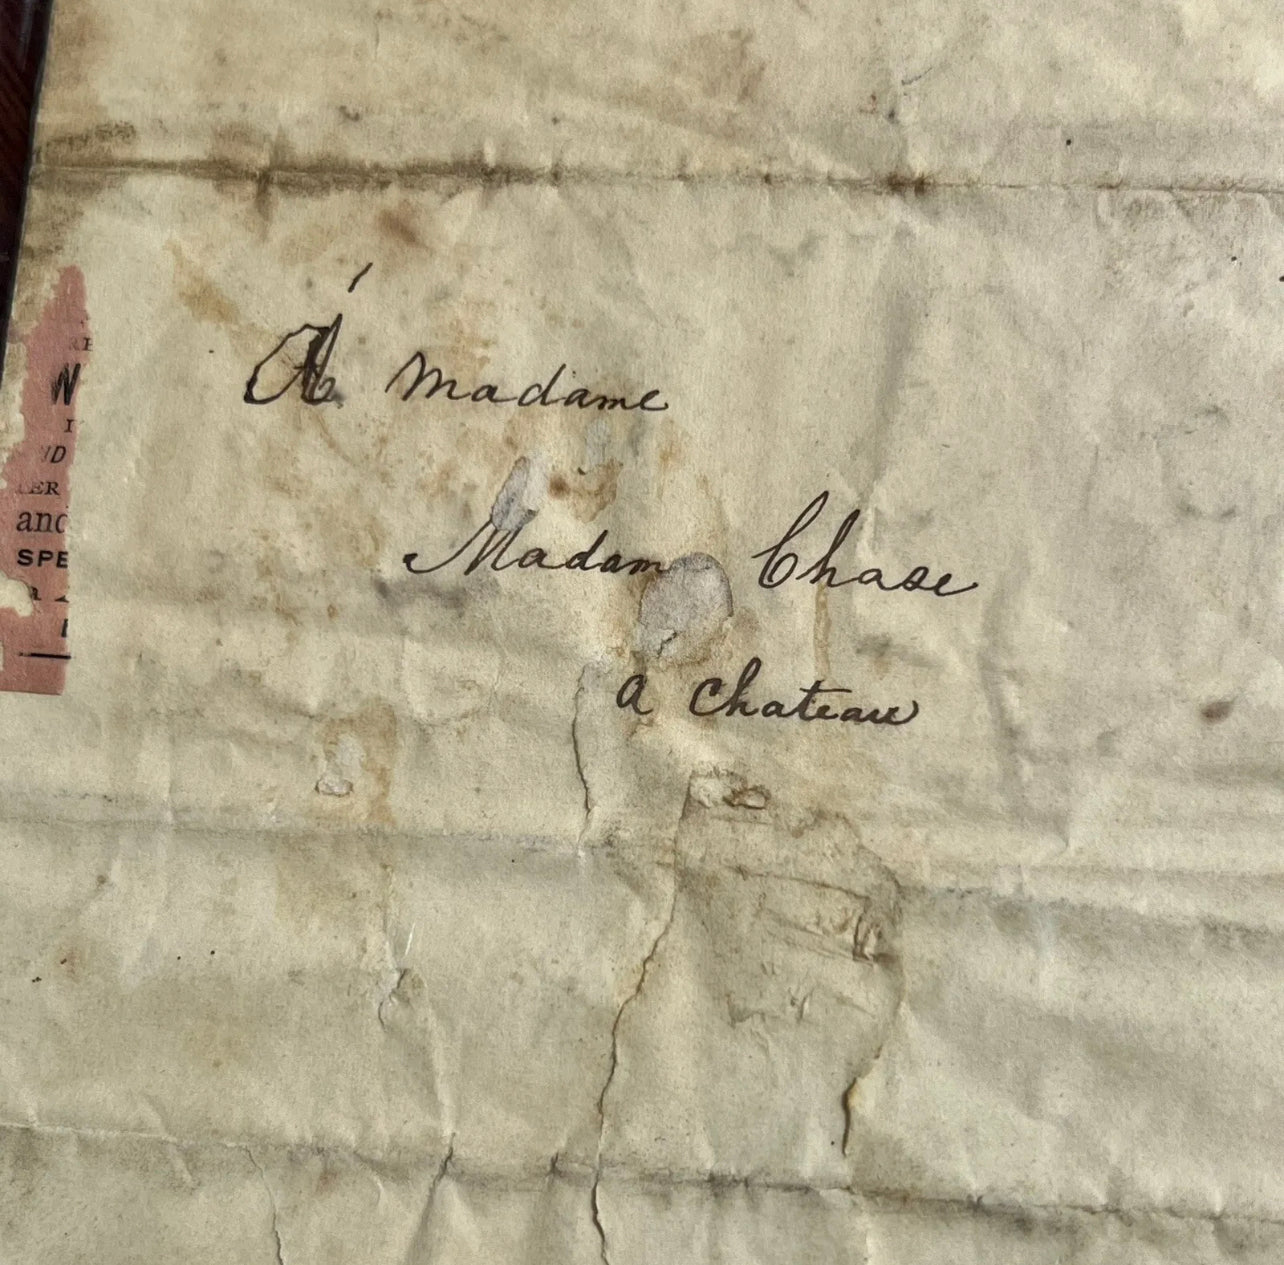 Á madame
Madam Chase
a chateau
W
ND
and
SPE